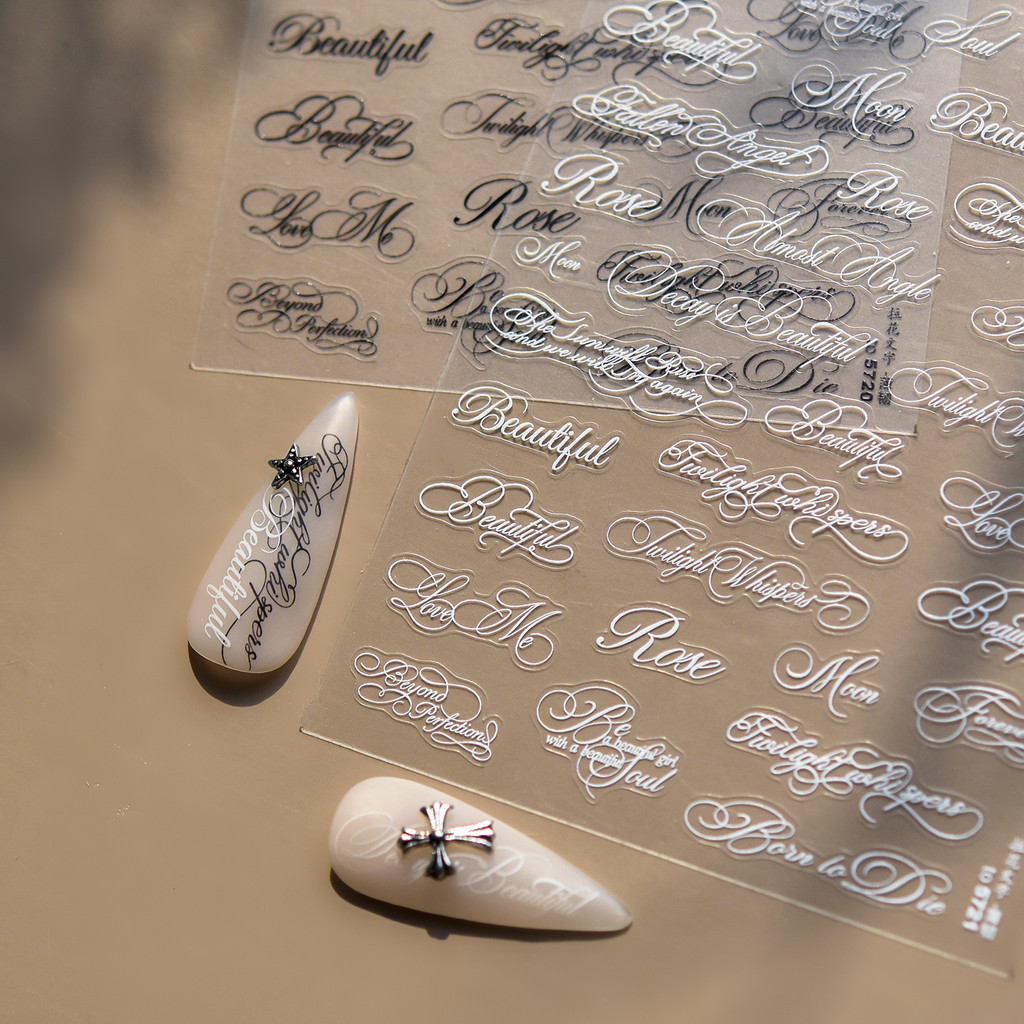 Beautiful
Twilight whispers
Beautiful
Twilight Whispers
Love Me
Rose
Moon
Forever
Beyond
Perfection
Be
with a beautiful
Twilight whispers
to Die
to 5720
Soul
Love
Soul
Beautiful
Moon
Beautiful
Fallen Angel
Rose
Rose
Almost Angle
Moon
Decay is Beautiful
The sun will Rise
and we will try again
Beautiful
Beautiful
Twilight
Twilight whispers
Beautiful
Love
Twilight Whispers
Love Me
Rose
Moon
Beyond
Perfection
Be
a beautiful girl
with a beautiful
Soul
Twilight whispers
Born to Die
to 5721
Twilight whispers
Beautiful
Beautiful